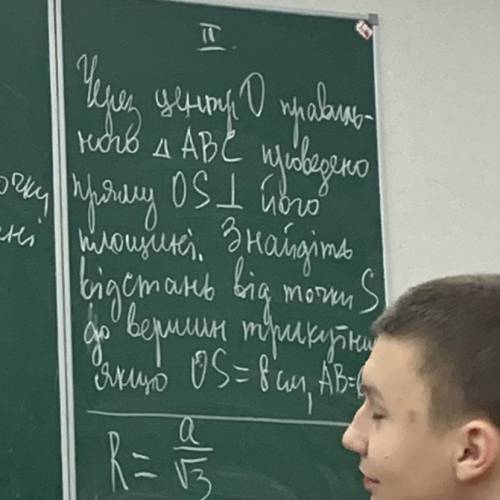 очку
ені
II.
Через центр O правиль-
ного △ ABC проведено
пряму OS ⊥ його
площині. Знайдіть
відстань від точки S
до вершин
якщо OS = 8 см, AB =
R = a/√3